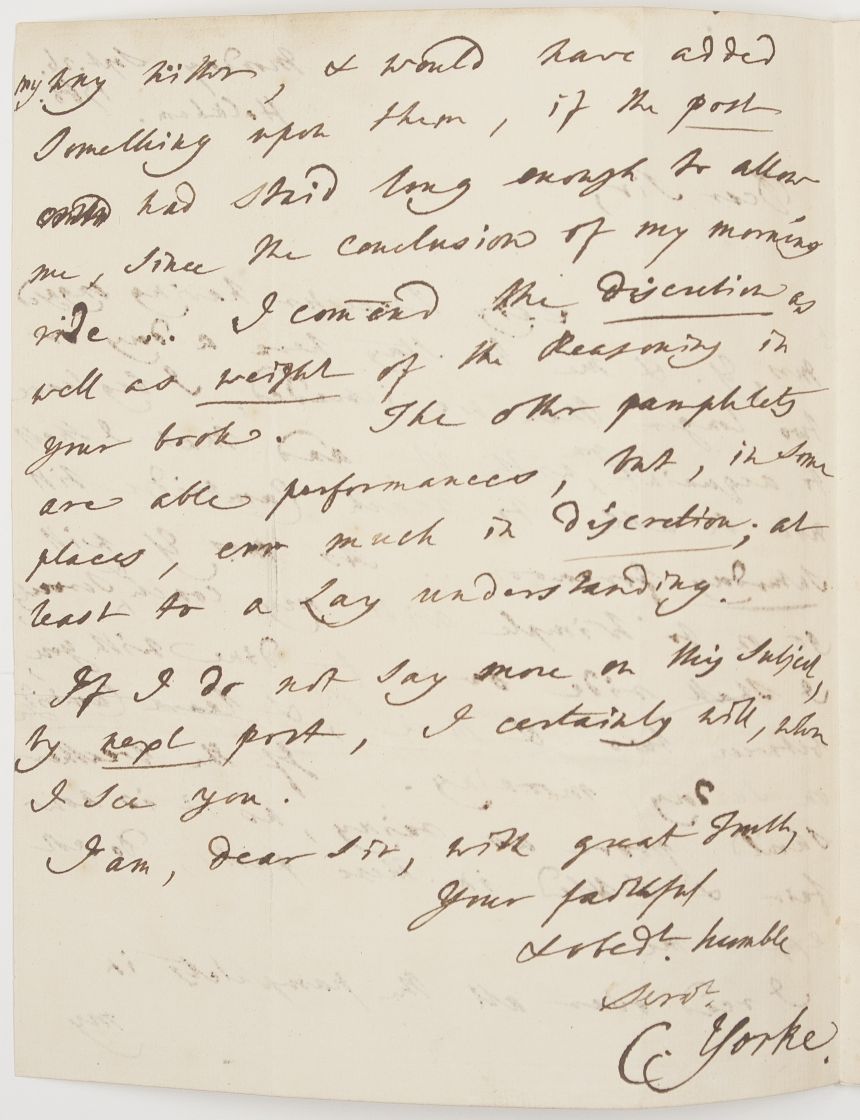 my way hither, & would have added
something upon them, if the post
had staid long enough to allow
me, since the conclusion of my morning
ride... I com̄end the discretion as
well as weight of the Reasoning in
your book. The other pamphlets
are able performances, but, in some
places, err much in discretion; at
least to a Lay understanding.
If I do not say more on this subject,
by next post, I certainly will, when
I see you.
I am, dear Sir, with great truth,
Your faithful
& obedt. humble
Servt.
C. Yorke.